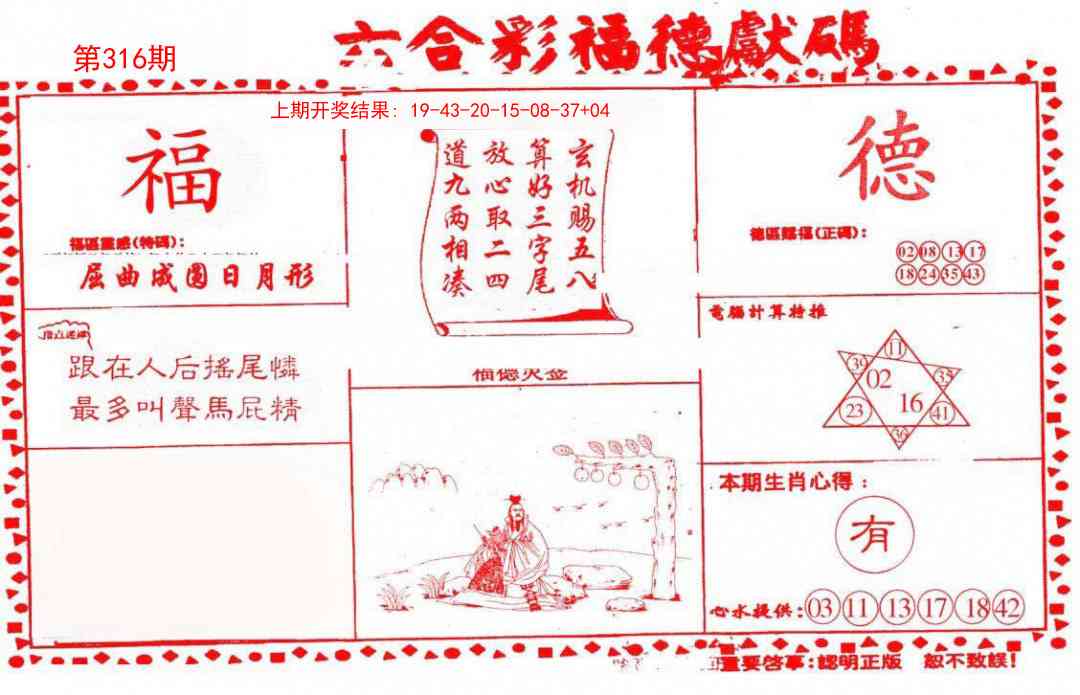 第316期
六合彩福德獻碼
上期开奖结果: 19-43-20-15-08-37+04
福
福區靈感(特碼):
屈曲成圓日月形
跟在人后搖尾憐
最多叫聲馬屁精
玄机赐五八
算好三字尾
放心取二四
道九两相凑
福德灵签
德
德區賜福(正碼):
02 08 13 17
18 24 35 43
電腦計算特推
11
39 02 35
23 16 41
36
本期生肖心得:
有
心水提供: 03 11 13 17 18 42
重要啓事:認明正版 恕不致誤!